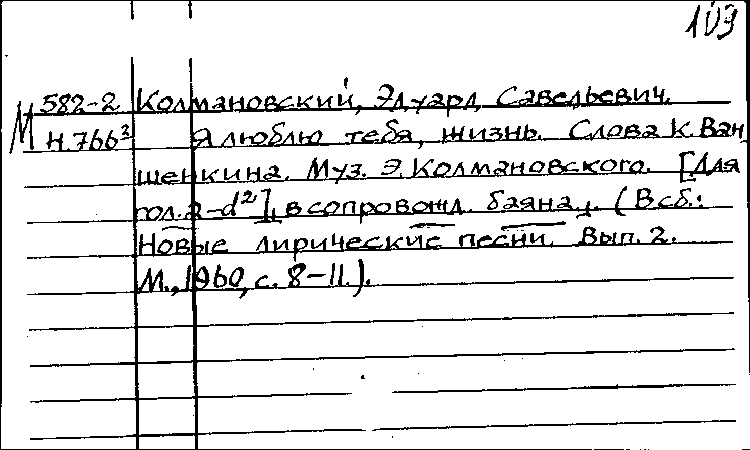 103
М 582-2 Колмановский, Эдуард Савельевич.
Н.766³ Я люблю тебя, жизнь. Слова К. Ван
шенкина. Муз. Э. Колмановского. [Для
гол. a-d²], в сопровожд. баяна. (В сб.:
Новые лирические песни. Вып. 2.
М., 1960, с. 8-11.).